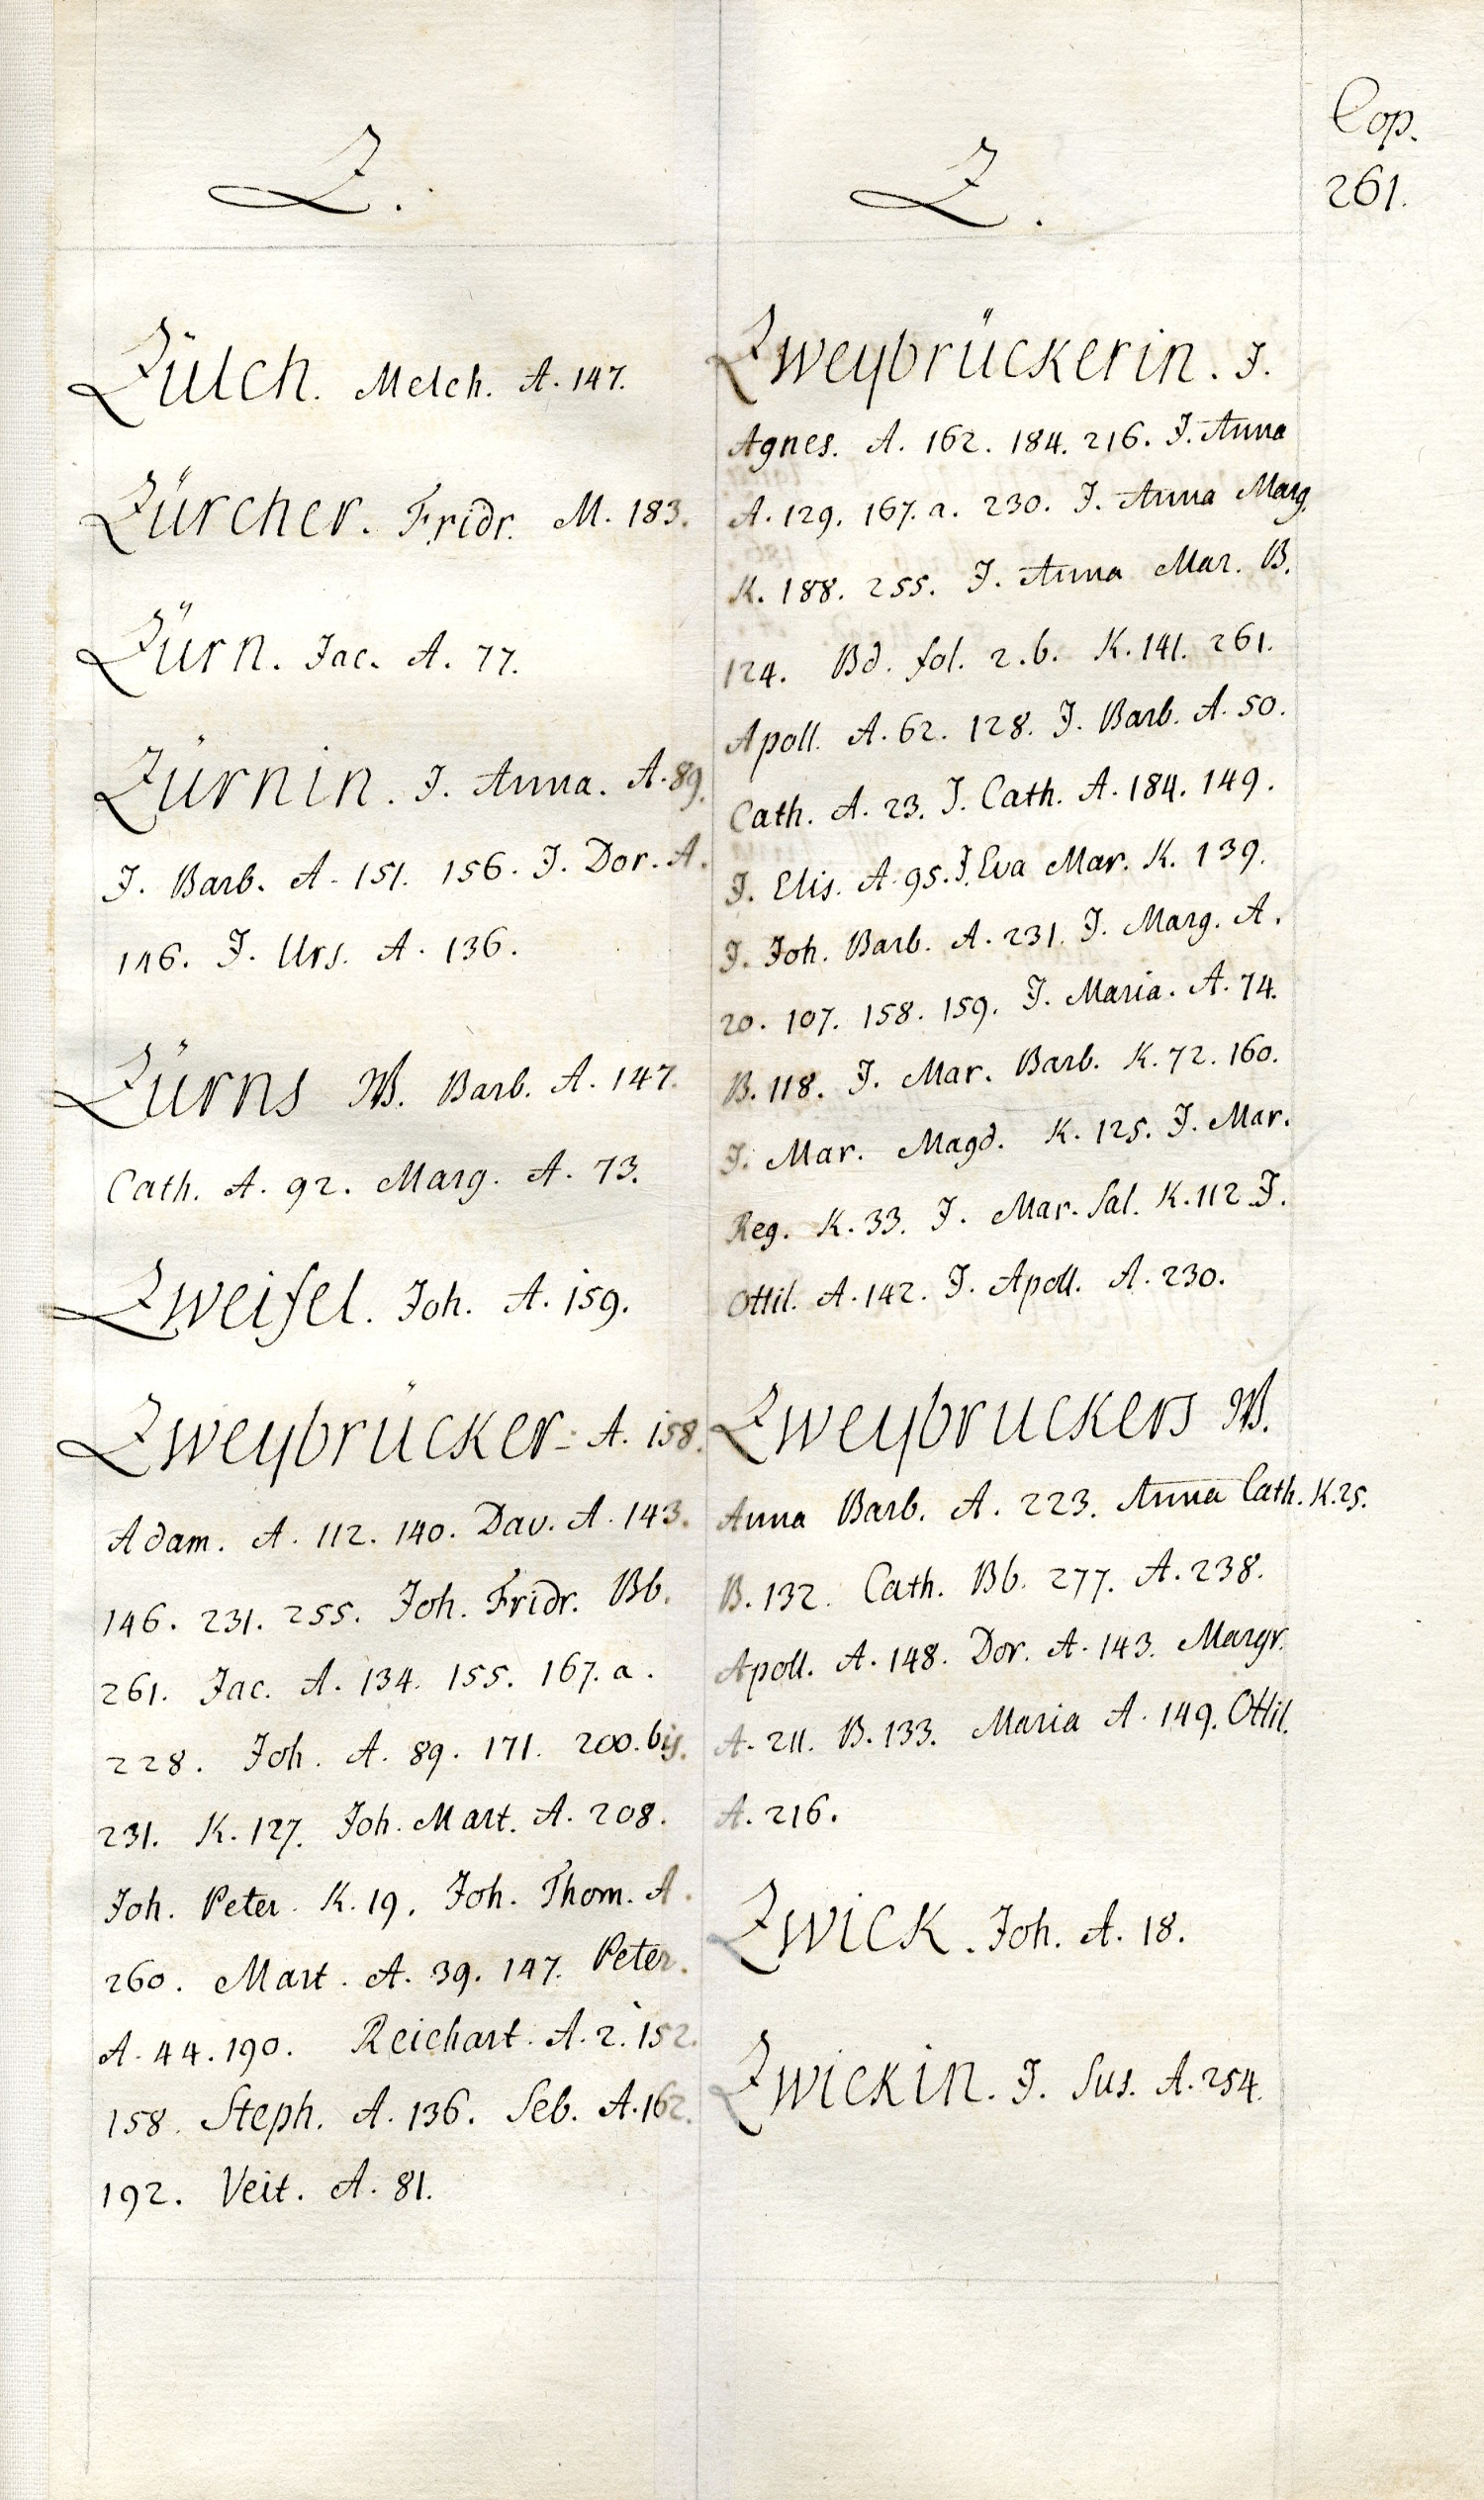 Cop.
261.
Z.
Zülch. Melch. A. 147.
Zürcher. Fridr. M. 183.
Zürn. Jac. A. 77.
Zürnin. J. Anna. A. 89.
J. Barb. A. 151. 156. J. Dor. A.
146. J. Urs. A. 136.
Zürns W. Barb. A. 147.
Cath. A. 92. Marg. A. 73.
Zweifel. Joh. A. 159.
Zweybrücker. A. 158.
Adam. A. 112. 140. Dav. A. 143.
146. 231. 255. Joh. Fridr. Bb.
261. Jac. A. 134. 155. 167. a.
228. Joh. A. 89. 171. 200. bis.
231. K. 127. Joh. Mart. A. 208.
Joh. Peter. K. 19. Joh. Thom. A.
260. Mart. A. 39. 147. Peter.
A. 44. 190. Reichart. A. 2. 152.
158. Steph. A. 136. Seb. A. 162.
192. Veit. A. 81.
Z.
Zweybrückerin. J.
Agnes. A. 162. 184. 216. J. Anna
A. 129. 167. a. 230. J. Anna Marg.
K. 188. 255. J. Anna Mar. B.
124. Bd. fol. 2. b. K. 141. 261.
Apoll. A. 62. 128. J. Barb. A. 50.
Cath. A. 23. J. Cath. A. 184. 149.
J. Elis. A. 95. J. Eva Mar. K. 139.
J. Joh. Barb. A. 231. J. Marg. A.
20. 107. 158. 159. J. Maria. A. 74.
B. 118. J. Mar. Barb. K. 72. 160.
J. Mar. Magd. K. 125. J. Mar.
Reg. K. 33. J. Mar. Sal. K. 112. J.
Ottil. A. 142. J. Apoll. A. 230.
Zweybruckers W.
Anna Barb. A. 223. Anna Cath. K. 25.
B. 132. Cath. Bb. 277. A. 238.
Apoll. A. 148. Dor. A. 143. Margr.
A. 211. B. 133. Maria A. 149. Ottil.
A. 216.
Zwick. Joh. A. 18.
Zwickin. J. Sus. A. 254.